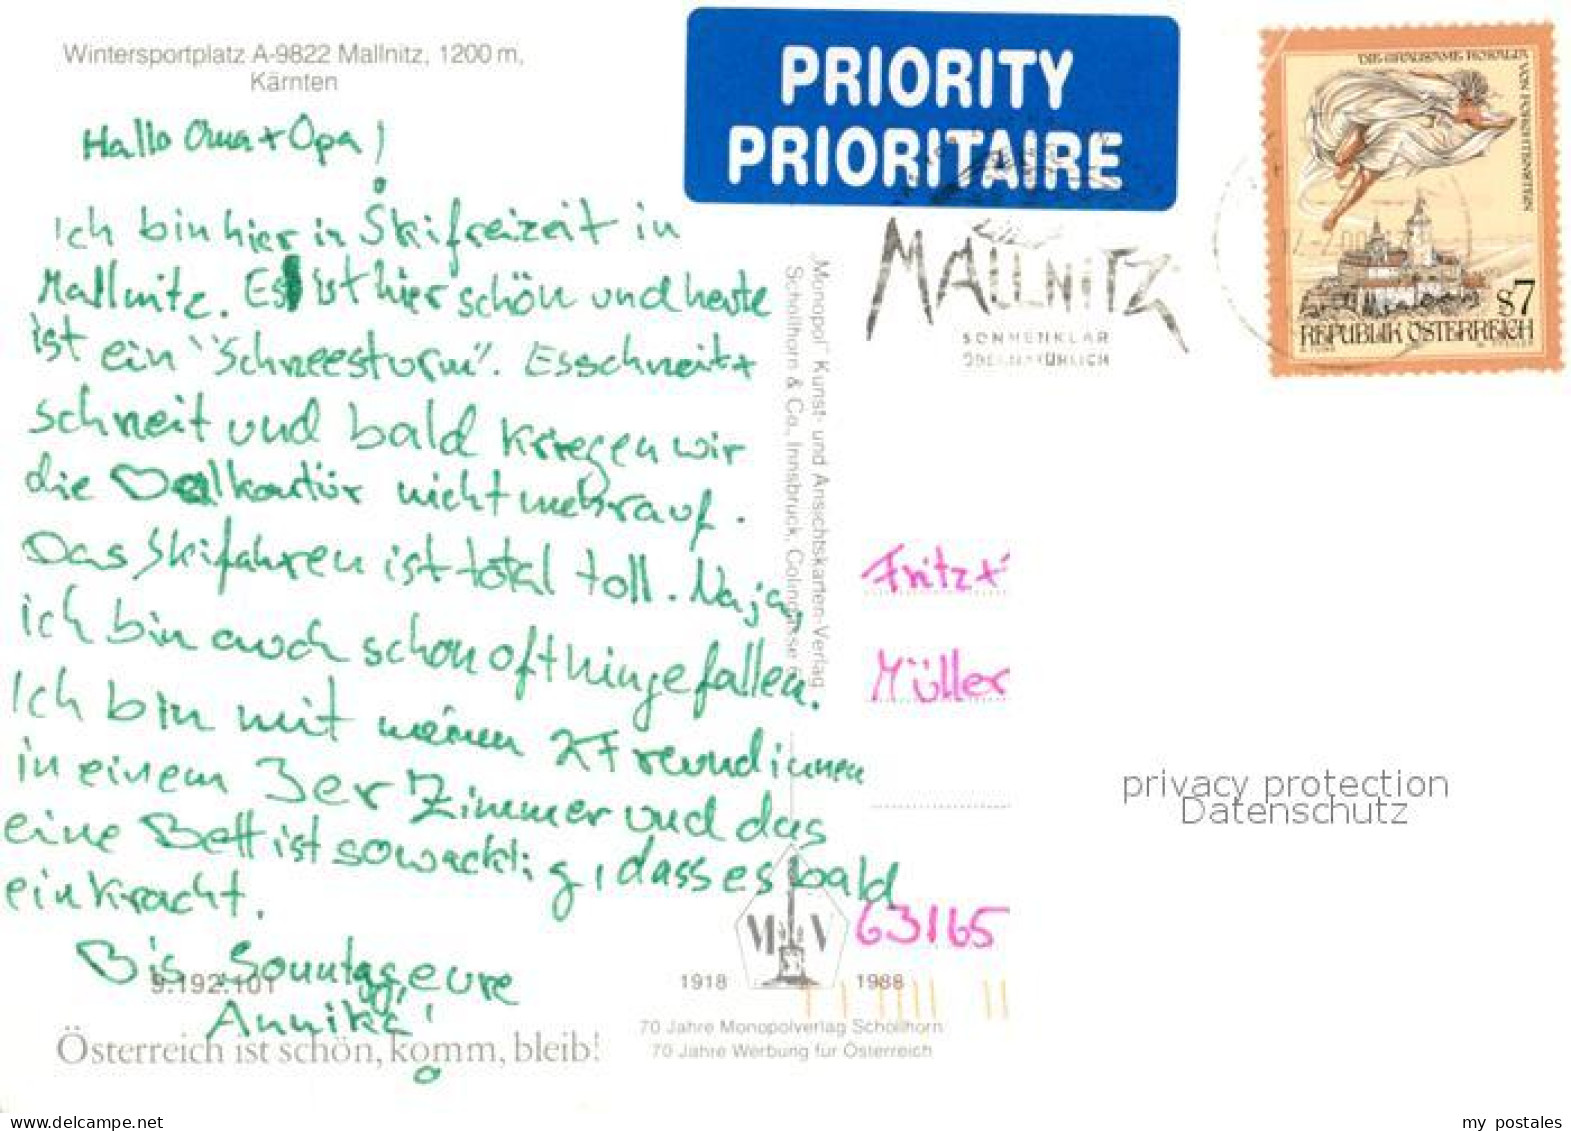 Wintersportplatz A-9822 Mallnitz, 1200 m,
Kärnten
Hallo Oma + Opa!
Ich bin hier in Skifreizeit in
Mallnitz. Es ist hier schön und heute
ist ein "Schneesturm". Es schneit +
schneit und bald kriegen wir
die Balkontür nicht mehr auf.
Das Skifahren ist total toll. Naja,
ich bin auch schon oft hingefallen.
Ich bin mit meinen 2 Freundinnen
in einem 3er Zimmer und das
eine Bett ist so wackelig, dass es bald
einkracht.
Bis Sonntag, eure
Annika!
9.192.101
Österreich ist schön, komm, bleib!
„Monopol" Kunst- und Ansichtskarten-Verlag
Schöllhorn & Co., Innsbruck, Colingasse
M V
1918 1988
70 Jahre Monopolverlag Schöllhorn
70 Jahre Werbung für Österreich
PRIORITY
PRIORITAIRE
MALLNITZ
SONNENKLAR
ÜBERNATÜRLICH
DIE GRAUSAME ROSALIA VON FORCHTENSTEIN
S7
REPUBLIK ÖSTERREICH
Fritz +
Müller
63165
privacy protection
Datenschutz
my postales